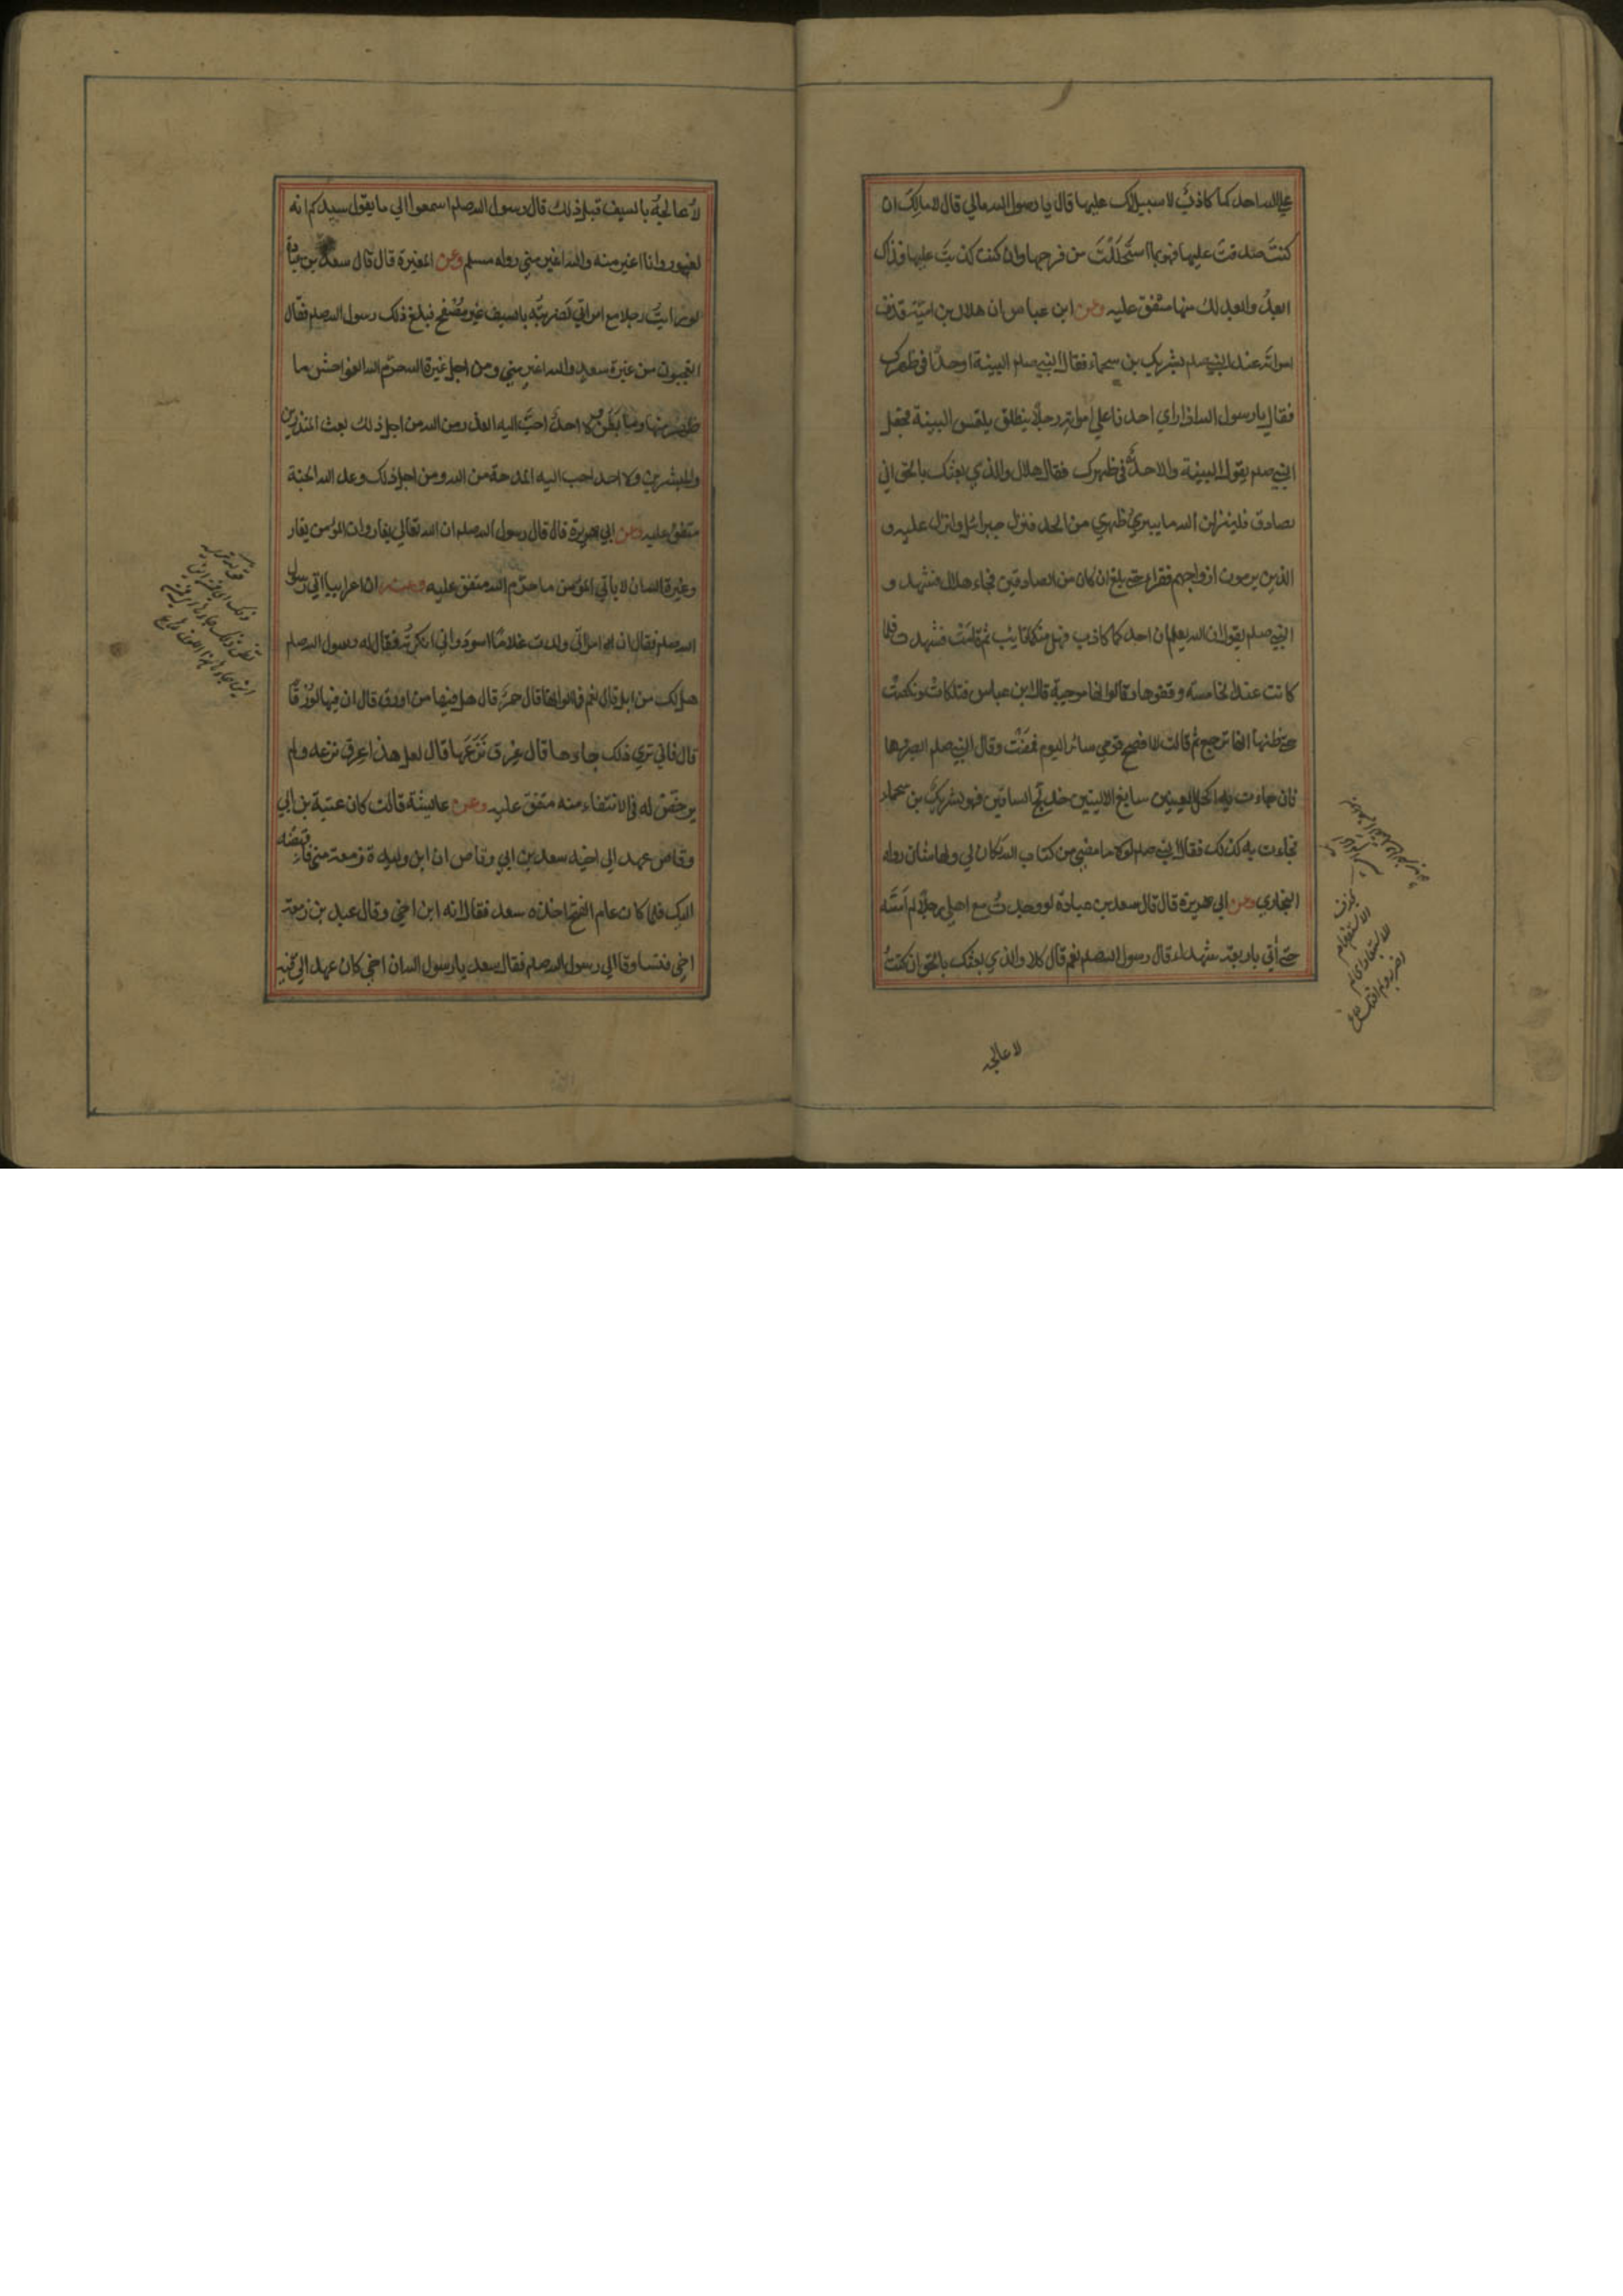 علي الله احدكما كاذب لا سبيل لك عليها قال يا رسول الله مالي قال لا مال لك ان
كنتَ صدقتَ عليها فهو بما استحللتَ من فرجها وان كنت كذبتَ عليها فذاك
ابعدُ وابعد لك منها متفق عليه وعن ابن عباس ان هلال بن اميّة قذف
امراته عند النبي صلم بشريك بن سحماء فقال النبي صلم البينة او حدًّا في ظهرك
فقال يا رسول الله اذا راي احدنا علي امراته رجلًا ينطلق يلتمس البينة فجعل
النبي صلم يقول البينة والا حدٌّ في ظهرك فقال هلال والذي بعثك بالحق اني
لصادق فلينزلن الله ما يبرئ ظهري من الحد فنزل جبرائيل وانزل عليه و
الذين يرمون ازواجهم فقرا حتي بلغ ان كان من الصادقين فجاء هلال فشهد و
النبي صلم يقول ان الله يعلم ان احدكما كاذب فهل منكما تايب ثم قامَتْ فشهدت فلما
كانت عند الخامسة وقفوها وقالوا انها موجبة قال ابن عباس فتلكات ونكصتْ
حتي ظننا انها ترجع ثم قالت لا افضح قومي سائر اليوم فمضَتْ وقال النبي صلم ابصروها
فان جاءت به اكحل العينين سابغ الاليتين خدلّج الساقين فهو لشريك بن سحماء
فجاءت به كذلك فقال النبي صلم لولا ما مضي من كتاب الله لكان لي ولها شان رواه
البخاري وعن ابي هريرة قال قال سعد بن عبادة لو وجدتُ مع اهلي رجلًا لم امسّه
حتي اٰتي باربعة شهداء قال رسول الله صلم نعم قال كلا والذي بعثك بالحق ان كنتُ
لا عالجه
لاُعالجهُ بالسيف قبل ذلك قال رسول الله صلم اسمعوا الي ما يقول سيدكم انه
لغيور وانا اغير منه والله اغير مني رواه مسلم وعن المغيرة قال قال سعد بن عبادة
لو رايتُ رجلا مع امراتي لضربتُه بالسيف غير مُصْفَح فبلغ ذلك رسول الله صلم فقال
اتعجبون من غيرة سعد والله اغير مني ومن اجل غيرة الله حرّم الله الفواحش ما
ظهر منها وما بطن ولا احدٌ احبَّ اليه العذر من الله من اجل ذلك بعث المنذرين
والمبشرين ولا احد احب اليه المدحة من الله ومن اجل ذلك وعد الله الجنة
متفق عليه وعن ابي هريرة قال قال رسول الله صلم ان الله تعالي يغار وان المؤمن يغار
وغيرة الله ان لا ياتي المؤمن ما حرّم الله متفق عليه وعنه ان اعرابيا اتي رسول
الله صلم فقال ان امراتي ولدت غلامًا اسودَ واني انكرتُه فقال له رسول الله صلم
هل لك من ابل قال نعم قال فما الوانها قال حمرٌ قال هل فيها من اورق قال ان فيها لوُرْقًا
قال فاني تري ذلك جاءها قال عِرق نَزَعَها قال لعل هذا عِرق نزعه ولم
يرخّص له في الانتفاء منه متفق عليه وعن عايشة قالت كان عتبة بن ابي
وقاص عهد الي اخيه سعد بن ابي وقاص ان ابن وليدة زمعة مني فاقبضْه
اليك فلما كان عام الفتح اخذه سعد فقال انه ابن اخي وقال عبد بن زمعة
اخي فتساوقا الي رسول الله صلم فقال سعد يا رسول الله ان اخي كان عهد الي فيه